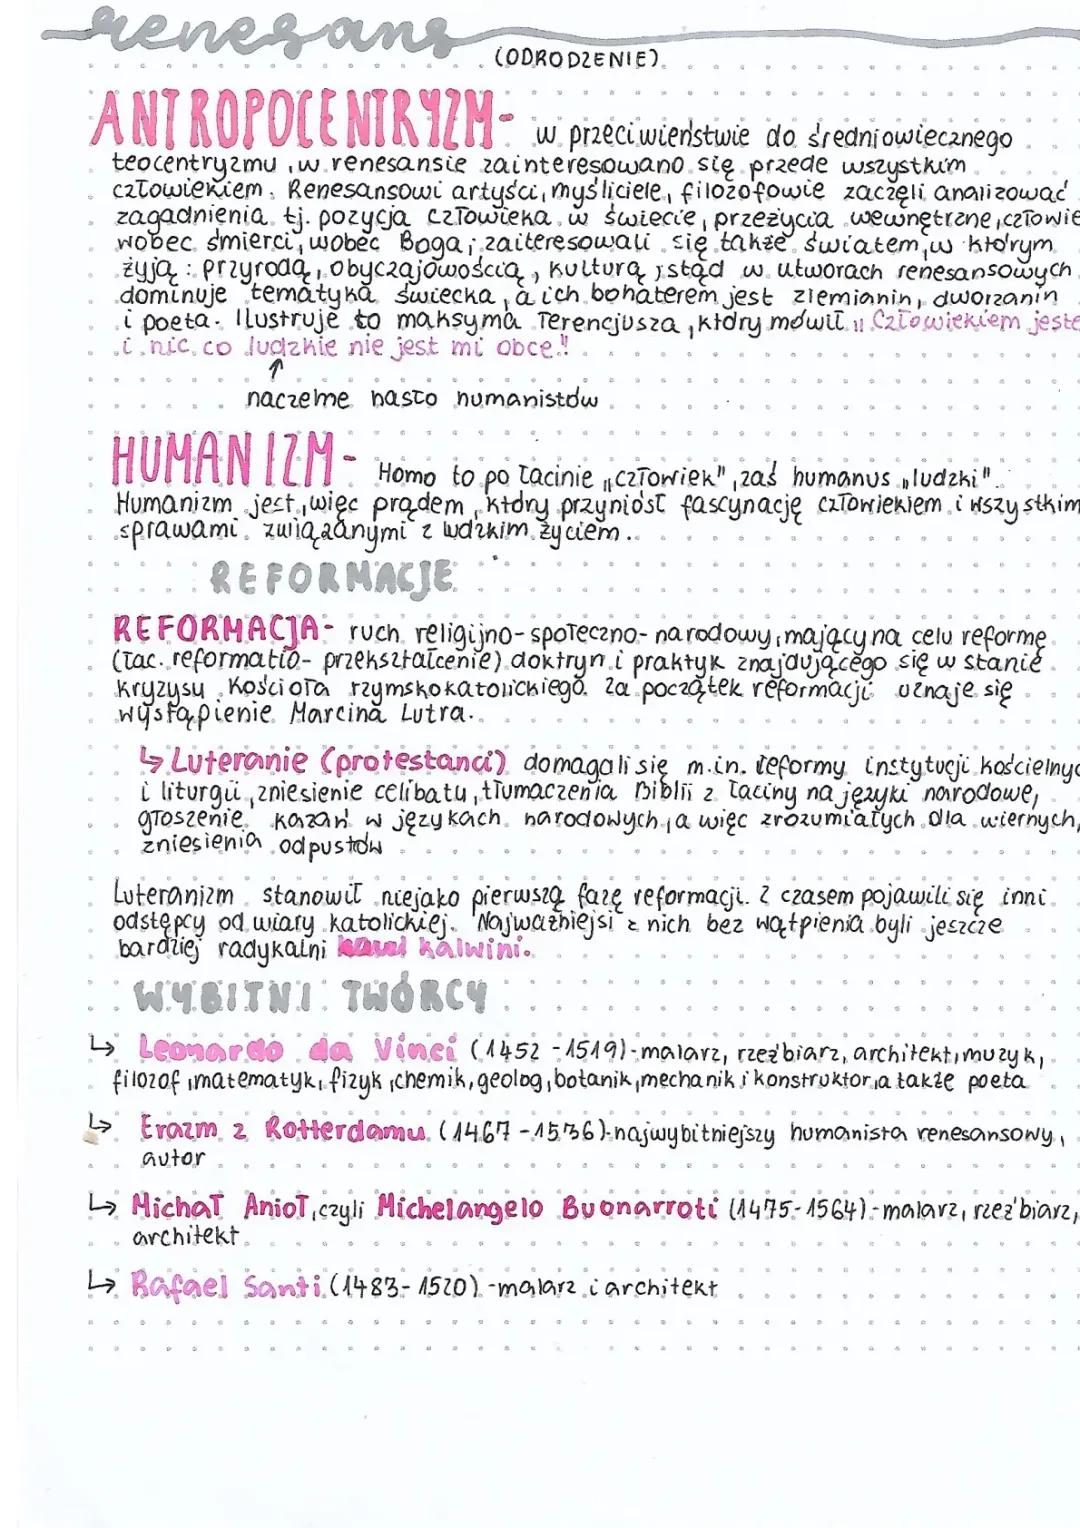 renesans
(ODRODZENIE)
ANTROPOCENTRYZM- w przeciwieństwie do średniowiecznego
teocentryzmu, w renesansie zainteresowano się przede wszystkim
człowiekiem. Renesansowi artyści, myśliciele, filozofowie zaczęli analizować
zagadnienia tj. pozycja człowieka w świecie, przeżycia wewnętrzne, człowie
wobec śmierci, wobec Boga; zaiteresowali się także światem, w którym
żyją: przyrodą, obyczajowością, kulturą, stąd w utworach renesansowych
dominuje tematyka świecka, a ich bohaterem jest ziemianin, dworzanin
i poeta. Ilustruje to maksyma Terencjusza, który mówił „Człowiekiem jeste
i nic co ludzkie nie jest mi obce".
↑
naczelne hasło humanistów
HUMANIZM- Homo to po łacinie „człowiek", zaś humanus „ludzki".
Humanizm jest, więc prądem, który przyniósł fascynację człowiekiem i wszystkim
sprawami związanymi z ludzkim życiem.
REFORMACJE
REFORMACJA- ruch religijno-społeczno-narodowy, mający na celu reformę
(łac. reformatio- przekształcenie) doktryn i praktyk znajdującego się w stanie
kryzysu Kościoła rzymskokatolickiego. Za początek reformacji uznaje się
wystąpienie Marcina Lutra.
↳ Luteranie (protestanci) domagali się m.in. reformy instytucji kościelnyc
i liturgii, zniesienie celibatu, tłumaczenia Biblii z łaciny na języki narodowe,
głoszenie kazań w językach narodowych, a więc zrozumiałych dla wiernych,
zniesienia odpustów
Luteranizm stanowił niejako pierwszą fazę reformacji. Z czasem pojawili się inni
odstępcy od wiary katolickiej. Najważniejsi z nich bez wątpienia byli jeszcze
bardziej radykalni kalwini.
WYBITNI TWÓRCY
↳ Leonardo da Vinci (1452-1519)-malarz, rzeźbiarz, architekt, muzyk,
filozof, matematyk, fizyk, chemik, geolog, botanik, mechanik i konstruktor, a także poeta
↳ Erazm z Rotterdamu (1467-1536)-najwybitniejszy humanista renesansowy,
autor
↳ Michał Anioł, czyli Michelangelo Buonarroti (1475-1564)-malarz, rzeźbiarz,
architekt
↳ Rafael Santi (1483-1520)-malarz i architekt